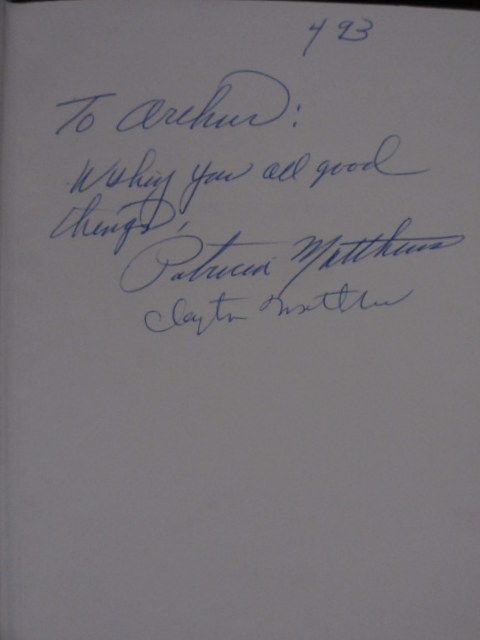 4 93
To Arthur:
Wishing you all good
things,
Patricia Matthews
Clayton Matthews